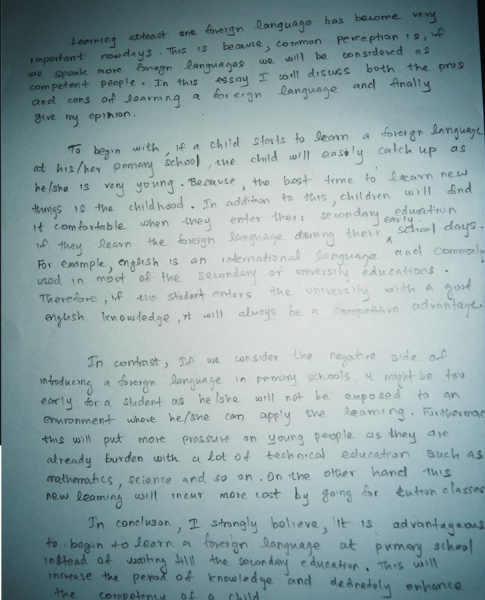 Learning atleast one foreign language has become very
important nowdays. This is because, common perception is, if
we speak more foreign languages we will be considered as
competent people. In this essay I will discuss both the pros
and cons of learning a foreign language and finally
give my opinion.
To begin with, if a child starts to learn a foreign language
at his/her primary school, the child will easily catch up as
he/she is very young. Because, the best time to learn new
things is the childhood. In addition to this, children will find
it comfortable when they enter their secondary education
if they learn the foreign language during their early school days.
For example, english is an international language and commonly
used in most of the secondary or university educations.
Therefore, if the student enters the university with a good
english knowledge, it will always be a competitive advantage.
In contrast, If we consider the negative side of
introducing a foreign language in primary schools. it might be too
early for a student as he/she will not be exposed to an
environment where he/she can apply the learning. Furthermore
this will put more pressure on young people as they are
already burden with a lot of technical education such as
mathematics, science and so on. On the other hand this
new learning will incur more cost by going for tution classes
In conclusion, I strongly believe, it is advantageous
to begin to learn a foreign language at primary school
instead of waiting till the secondary education. This will
increase the period of knowledge and definetely enhance
the competency of a child